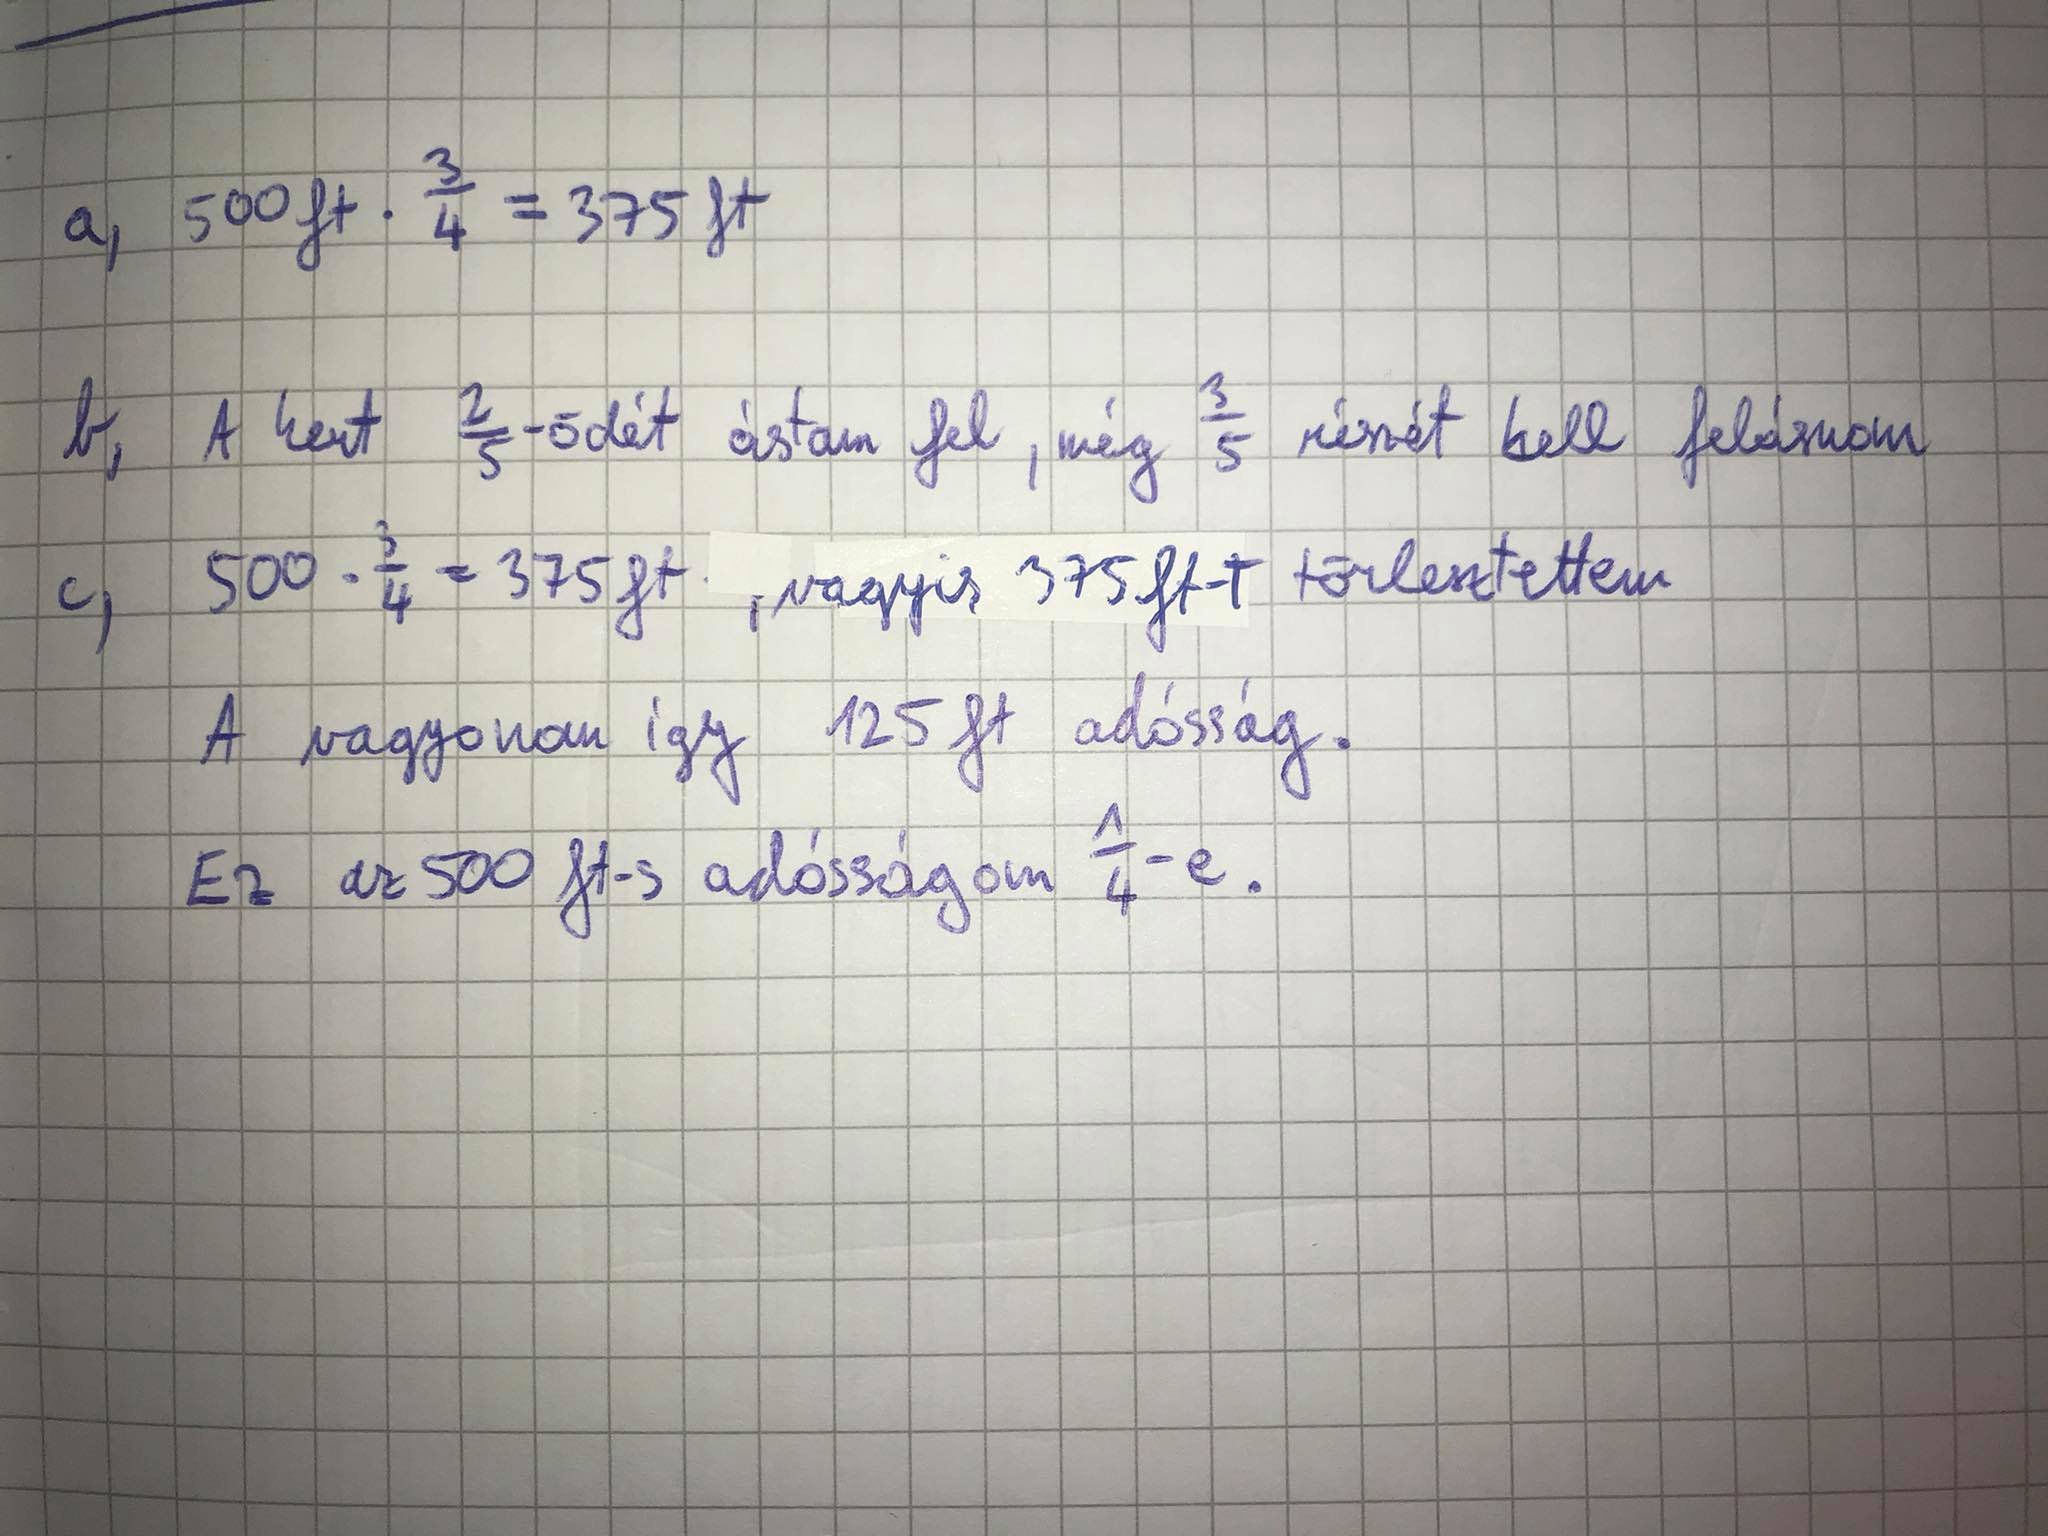 a, 500ft · 3/4 = 375ft
b, A kert 2/5-ödét ástam fel, még 3/5 részét kell felásnom
c, 500 · 3/4 = 375ft , vagyis 375ft-t törlesztettem
A vagyonom így 125ft adósság.
Ez az 500 ft-s adósságom 1/4-e.